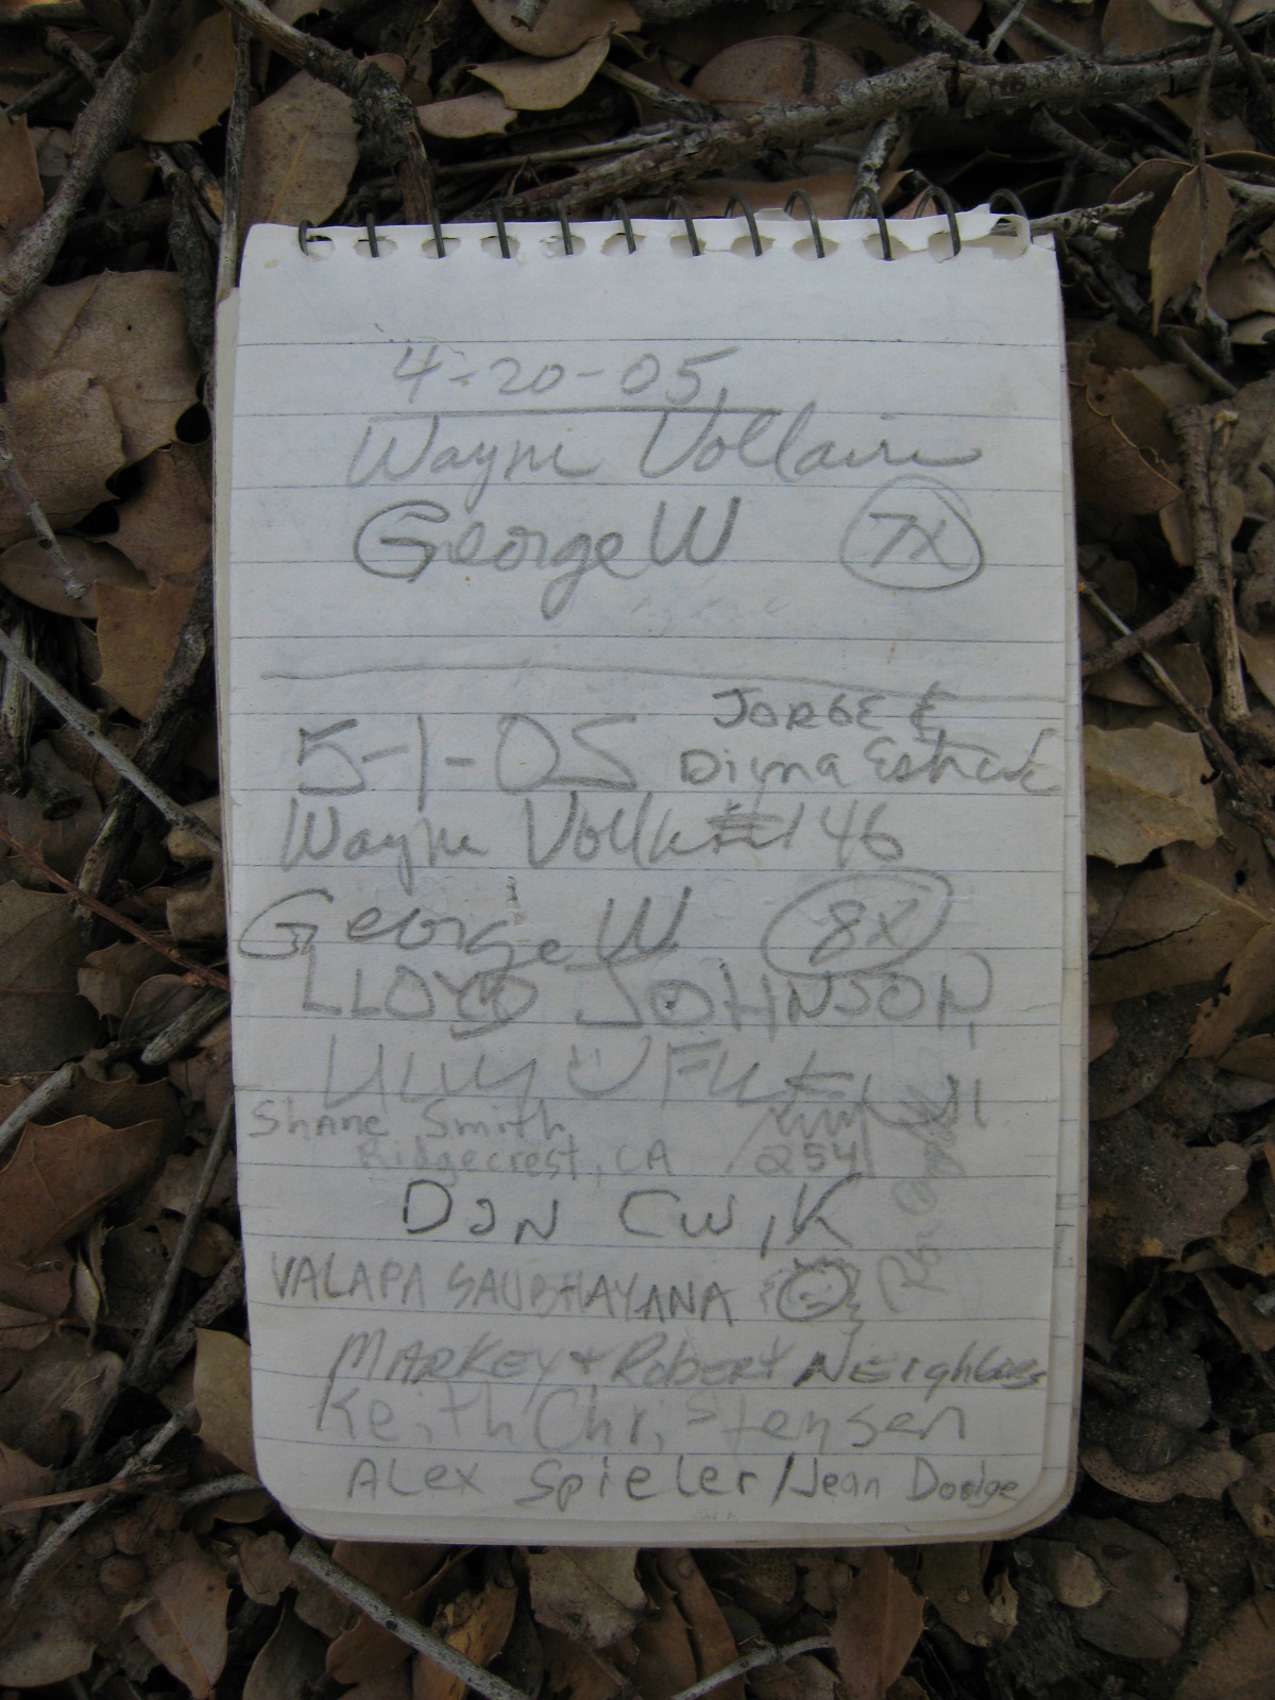 4-20-05
Wayne Vollaire
George W 7X
JORGE &
5-1-05 Digna
Wayne 146
George W 8X
LLOYD JOHNSON
Shane Smith
Ridgecrest, CA 254
DON CWIK
VALAPA SAUBHAYANA
MARKEY + ROBERT NEighbors
Keith Christensen
ALEX Spieler/Jean Dodge